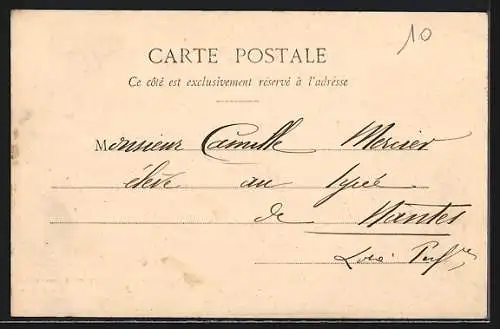 10
CARTE POSTALE
Ce côté est exclusivement réservé à l'adresse
Monsieur Camille Mercier
élève au lycée
de Nantes
Loire Infre